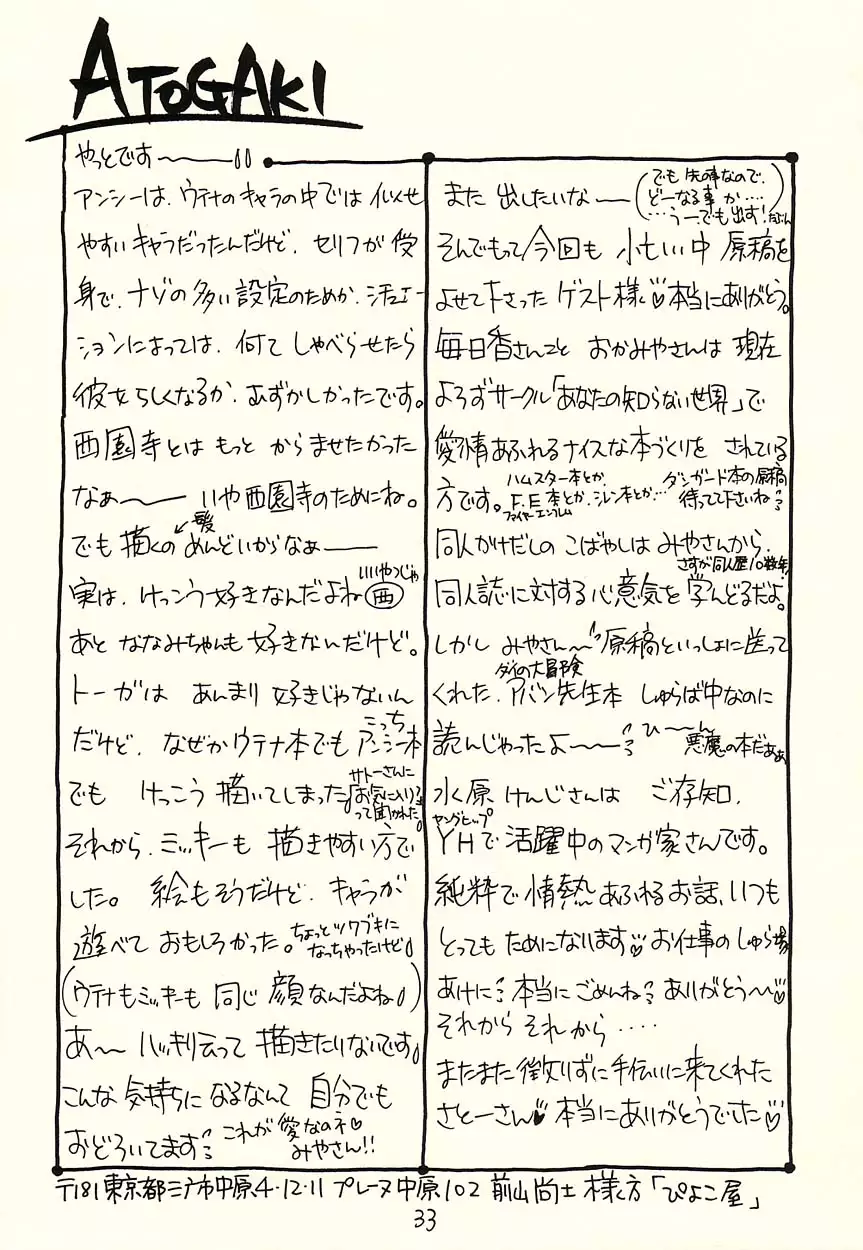 ATOGAKI
やっとです〜〜
アンシーは、ウテナのキャラの中では 似せ
やすいキャラだったんだけど、セリフが 受
身で、ナゾの多い設定のためか、シチュエー
ションによっては、何て しゃべらせたら
彼女らしくなるか、むずかしかったです。
西園寺とは もっと からませたかった
なぁ〜〜 いや西園寺のためにね。
髪
でも 描くの めんどいからなぁ——
いいやつじゃ
実は、けっこう好きなんだよね 西
あと ななみちゃんも 好きなんだけど。
トーガは あんまり 好きじゃないん
こっち
だけど、なぜかウテナ本でも アンシー本
でも けっこう 描いてしまった
サトーさんに
お気に入り?
って聞かれた。
それから、ミッキーも 描きやすい方で
した。 絵もそうだけど、キャラが
遊べて おもしろかった。
ちょっとツワブキに
なっちゃったけど
(ウテナもミッキーも 同じ 顔なんだよね)
あ〜 ハッキリ云って 描きたりないです
こんな 気持ちに なるなんて 自分でも
おどろいてます これが 愛なのネ♡
みやさん!!
また 出したいな〜
(でも 先の事なので、
どーなる事 か‥‥
‥‥うーでも出す! たぶん)
そんでもって 今回も 忙しい中 原稿を
よせて下さった ゲスト様♡ 本当にありがとう。
毎日香さんこと おかみやさんは 現在
よろずサークル「あなたの知らない世界」で
愛情あふれるナイスな本づくりを されている
方です。
ハムスター本とか、
F.E本とか、シレン本とか…
ファイヤーエンブレム
ダンガード本の原稿
待ってて下さいね
同人かけだしの こばやしは みやさんから、
さすが同人屋10数年!
同人誌に対する心意気を 学んどるだよ。
しかし みやさん〜 原稿といっしょに送って
ダイの大冒険
くれた、アバン先生本 しゅらば中なのに
読んじゃったよ〜〜 ひ〜〜ん
悪魔の本だぁぁ
水原 けんじさんは ご存知、
ヤングヒップ
YHで 活躍中のマンガ家さんです。
純粋で 情熱あふれるお話、いつも
とっても ためになります♡ お仕事の しゅら場
あけに 本当に ごめんね ありがとう〜♡
それから それから ‥‥
またまた 徴りずに 手伝いに 来てくれた
さとーさん♥ 本当にありがとうでした♡
〒181 東京都三鷹市中原4-12-11 プレーヌ中原102 前山尚士 様方「ぴよこ屋」
33